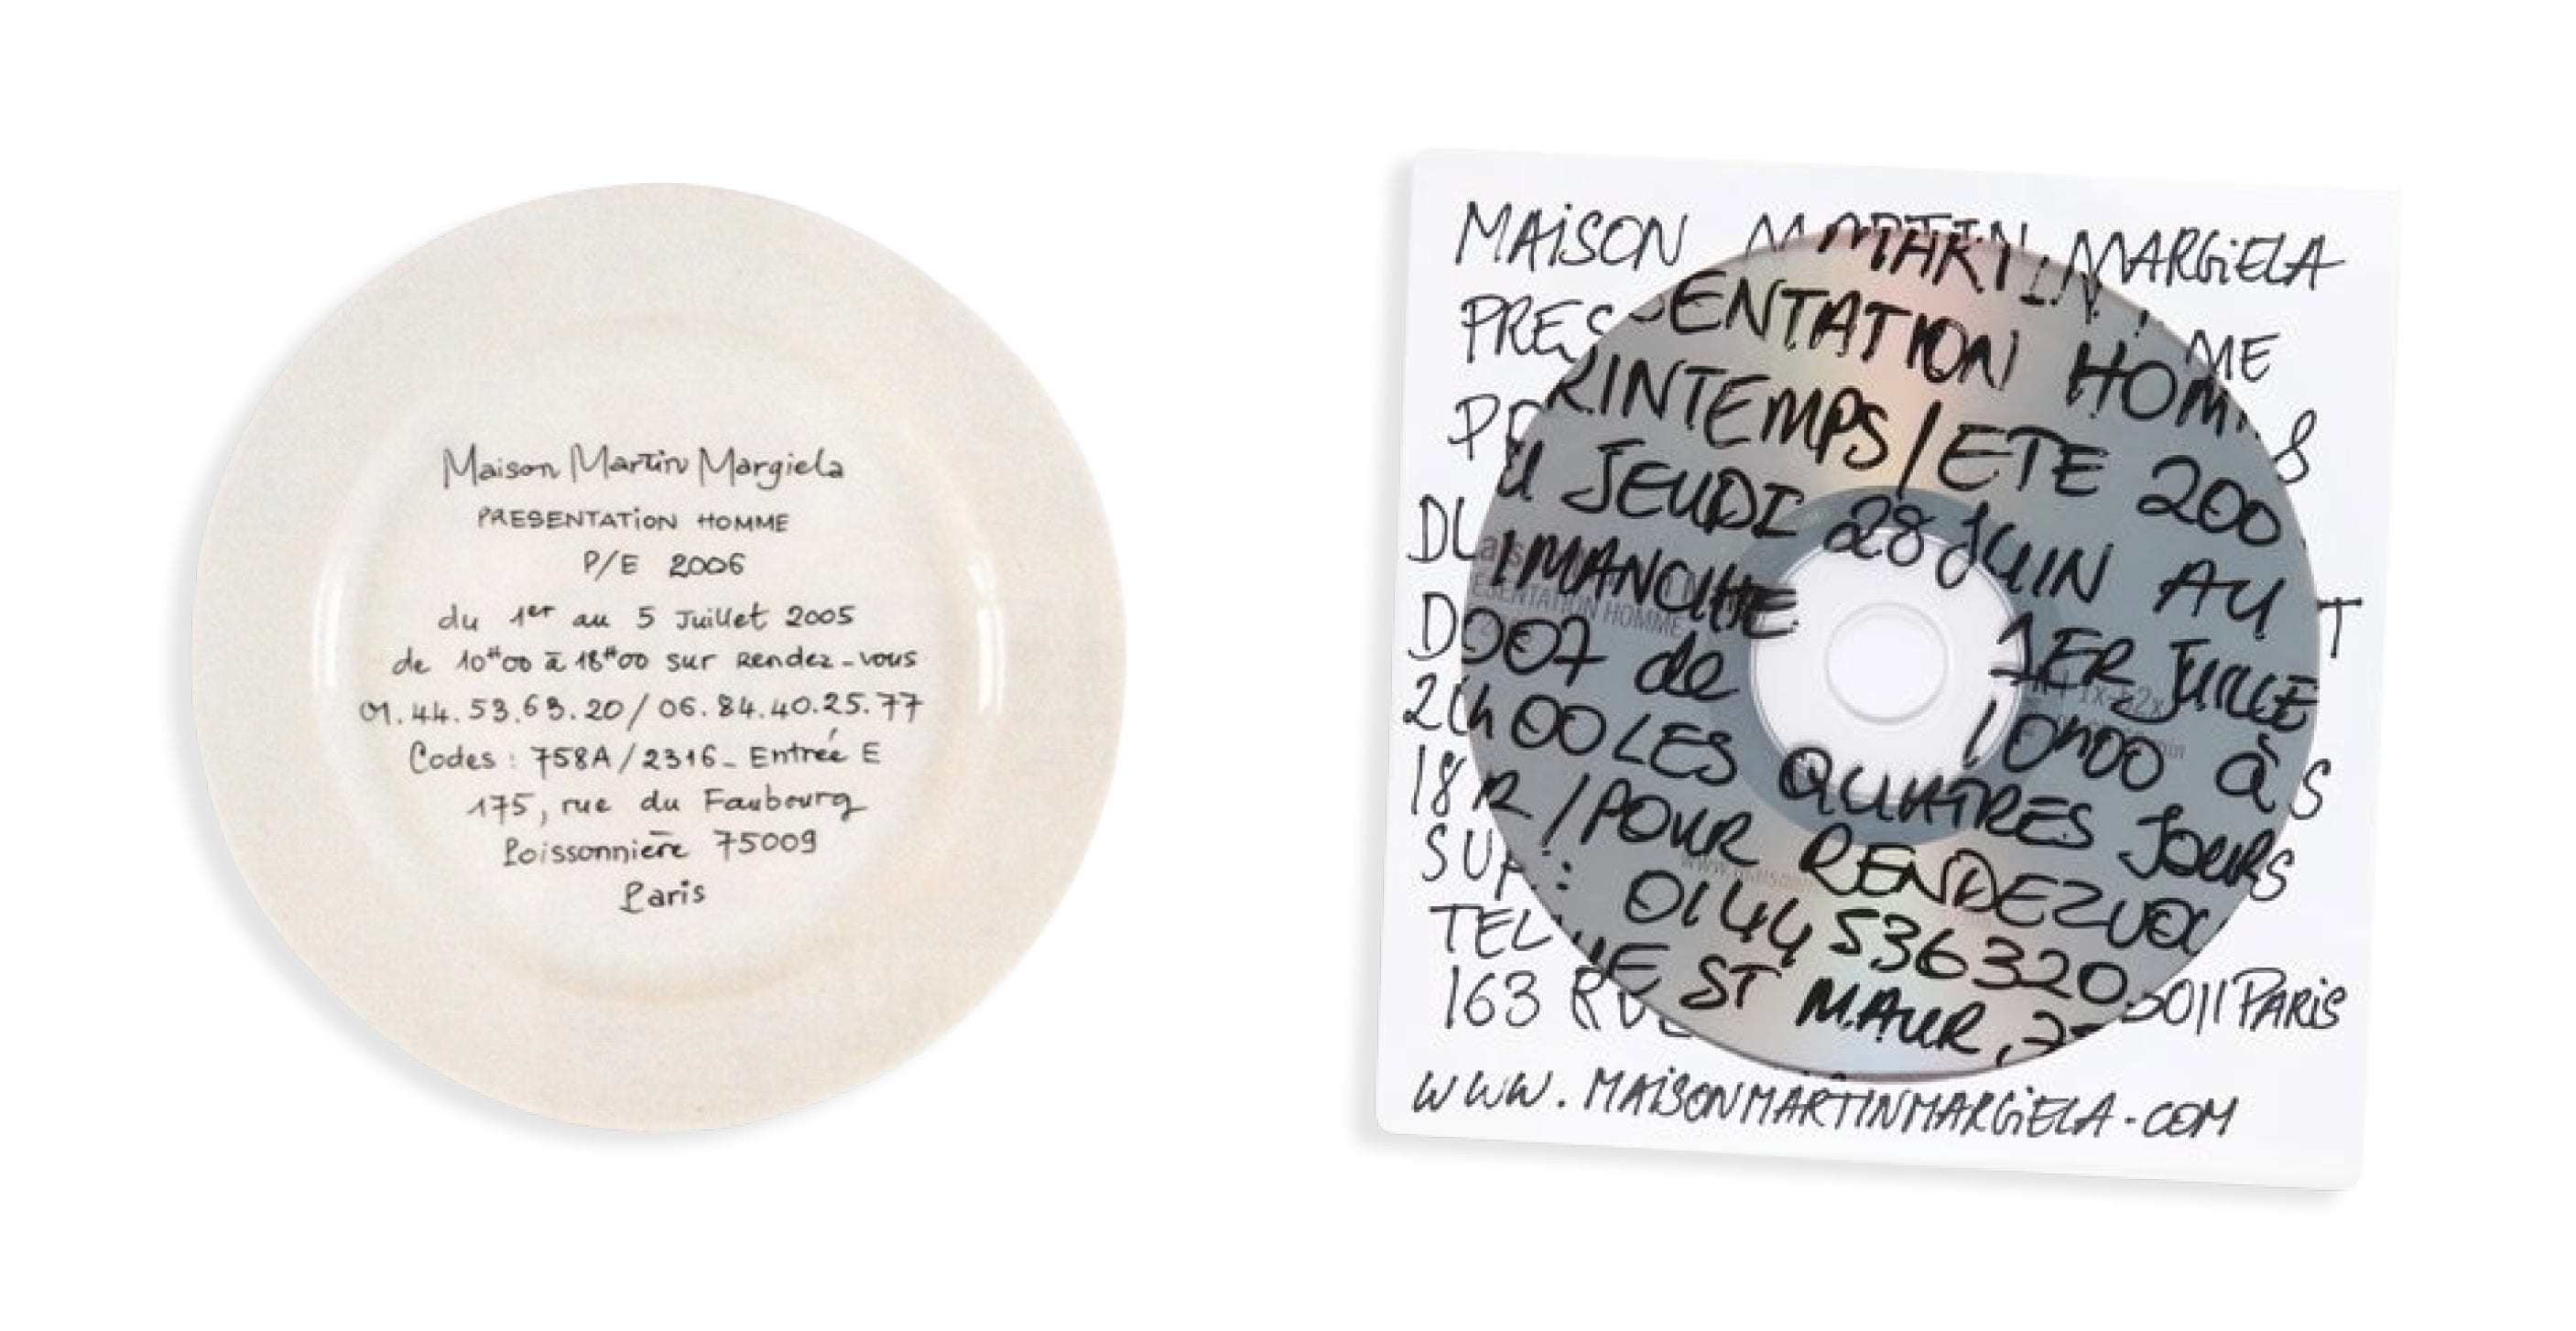 Maison Martin Margiela
PRESENTATION HOMME
P/E 2006
du 1er au 5 Juillet 2005
de 10H00 à 18H00 sur Rendez-vous
01.44.53.63.20/06.84.40.25.77
Codes : 758A/2316_ Entrée E
175, rue du Faubourg
Poissonnière 75009
Paris
MAISON MARTIN MARGIELA
PRESENTATION HOMME
PRINTEMPS/ETE 2008
DU JEUDI 28 JUIN AU
DIMANCHE 1ER JUILLET
2007 de 10h00 à
18h00 LES QUATRES JOURS
SUR /POUR RENDEZVOUS
TEL : 0144536320
163 RUE ST MAUR, 75011 PARIS
WWW.MAISONMARTINMARGIELA.COM